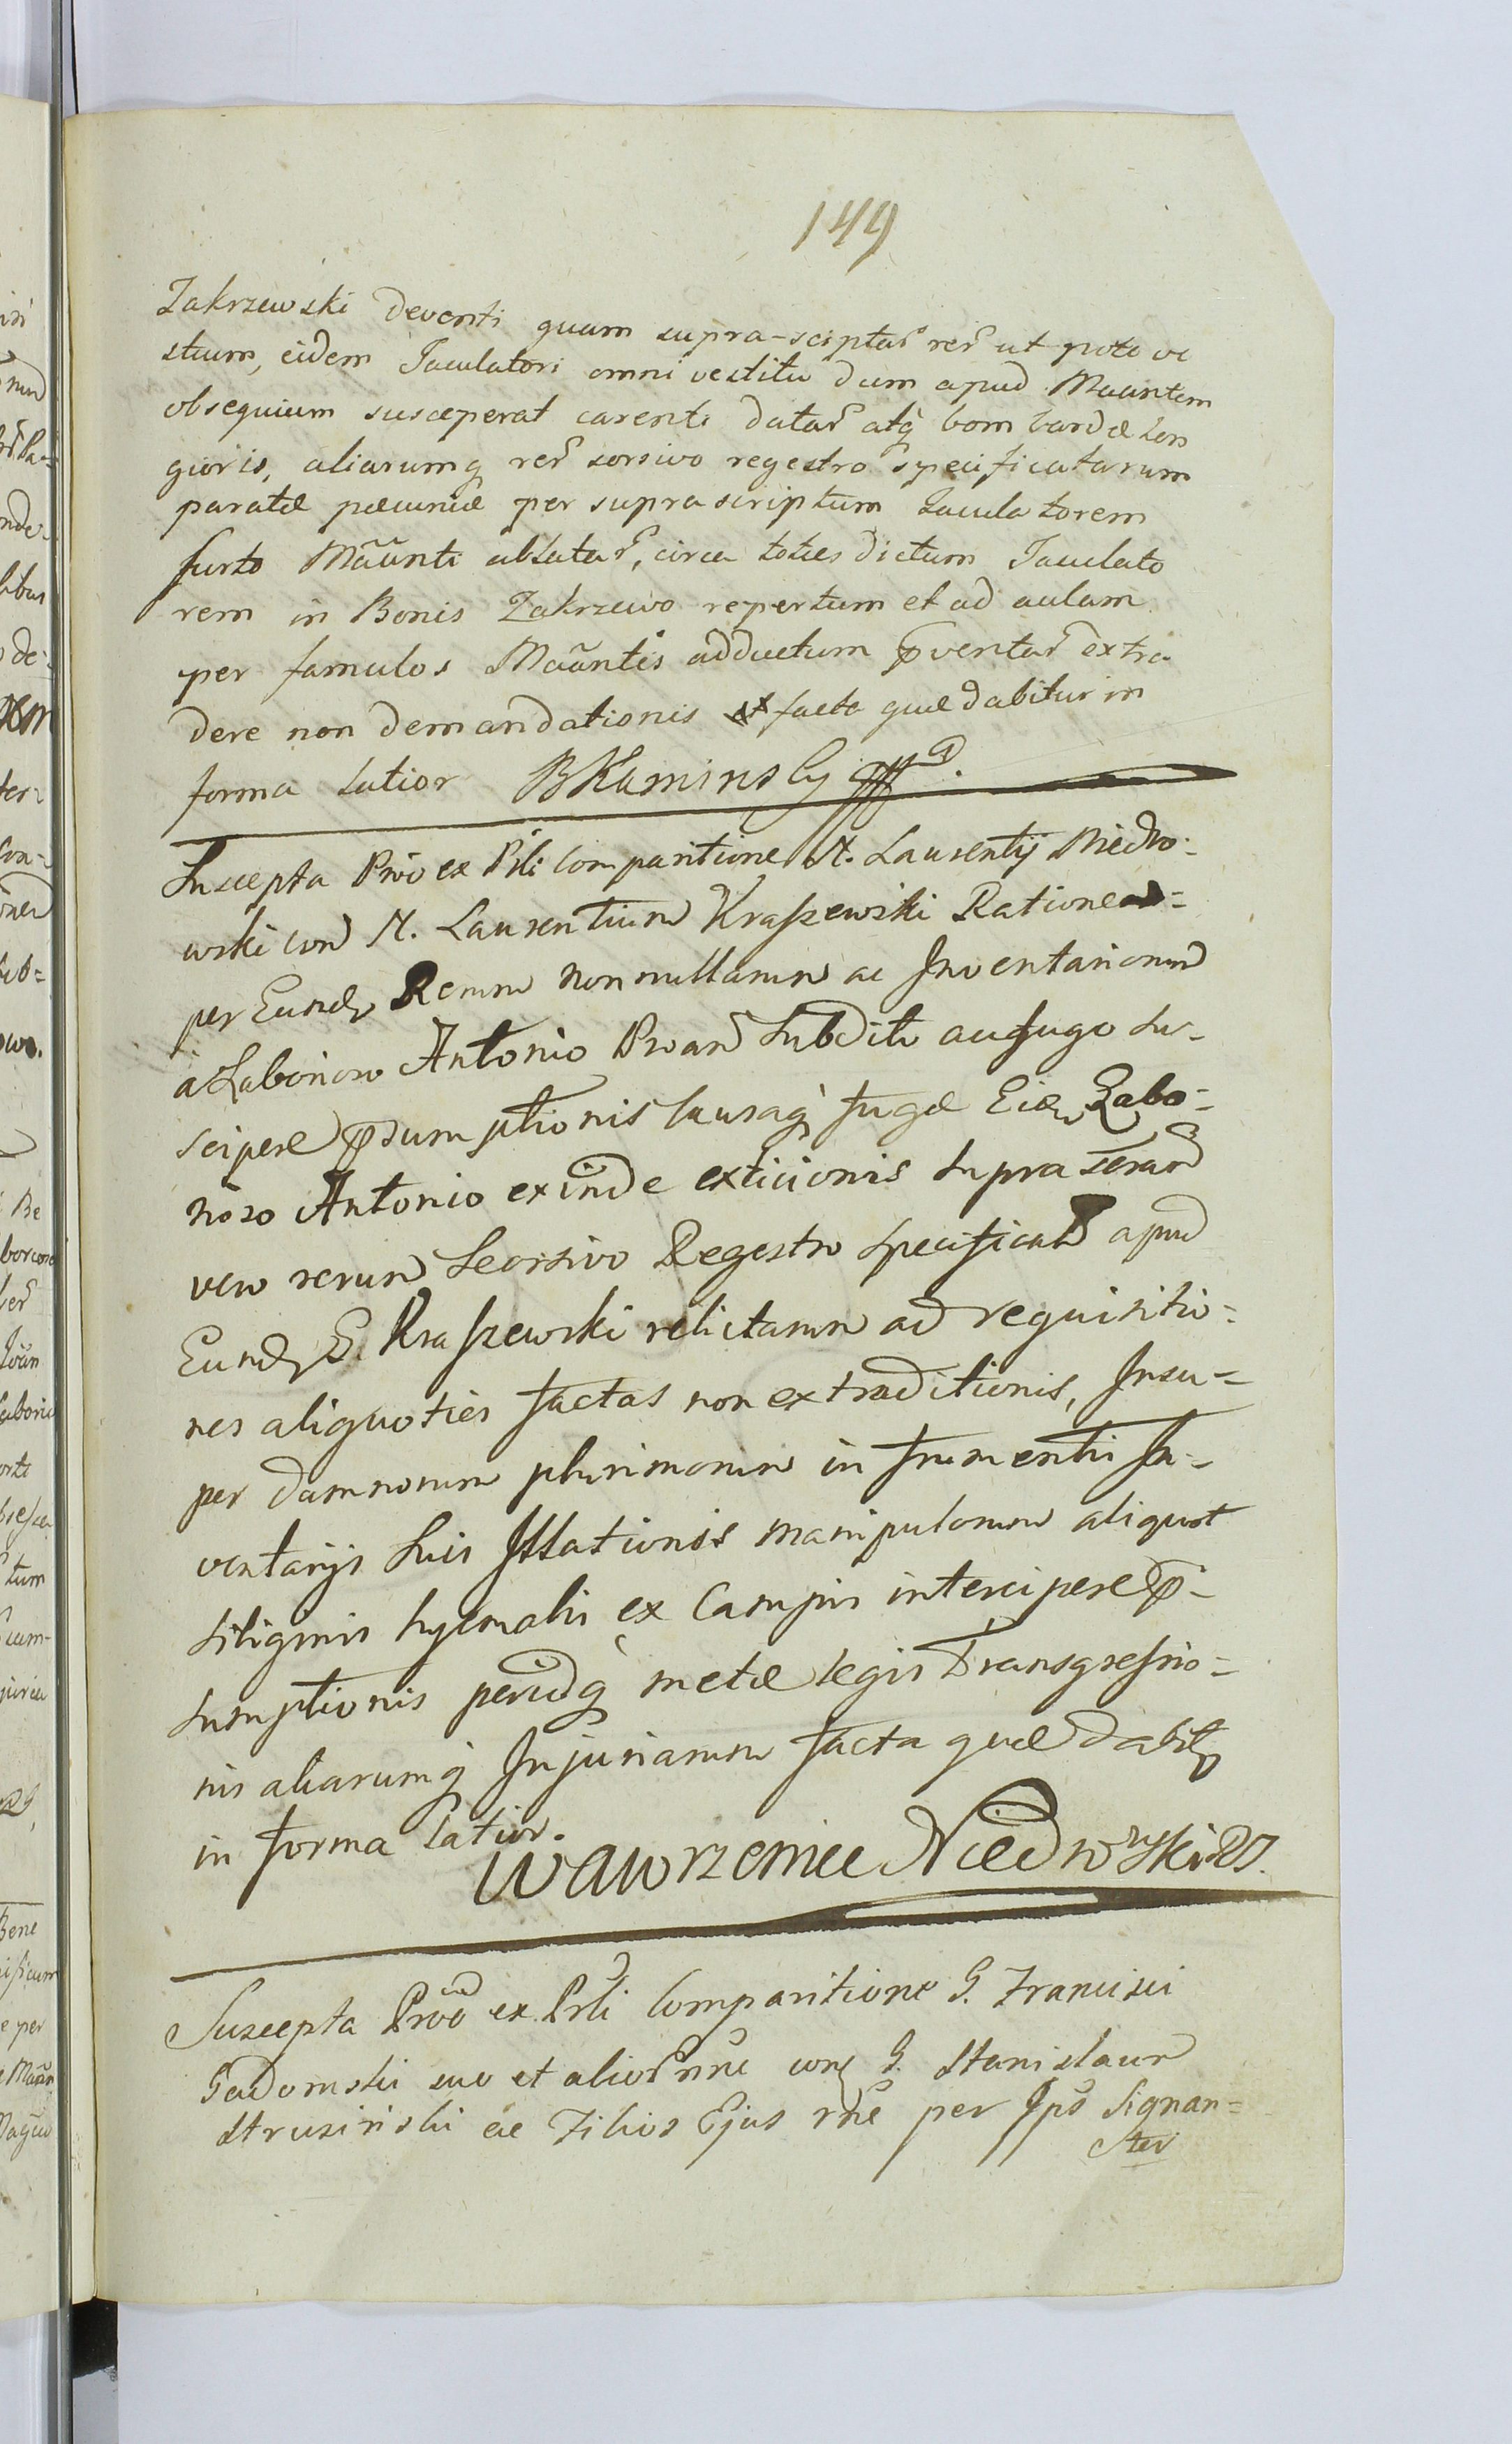 149
Zakrzewski deventi quam supra-sciptar̃ rer̃ ut pote ve
stium, eidem Jaculatori omni vestitu dum apud Maantem
obsequium susceperat carenti datar̃ atq̃ bombardæ lon
gioris, aliarumq rer̃ sorsivo regestro specificatarum
paratæ pæcuniæ per suprascriptum Jaculatorem
furto Mãanti ablatar̃, circa toties dictum Jaculato
rem in Bonis Zakrzewo repertum et ad aulam
per famulos Maãntis adductum pventar̃ extra
dere non demandationis ex facto quæ dabitur in
forma latior BKaminsky
Suscepta Prõo ex Prli Comparitione N. Laurentij Niedwo-
wski con N. Laurentium Kraszewski Ratione =
per Eund Rerum nonnullarum ac Inventariorum
a Laborioso Antonio Proar̃ Subdito aufugo su-
scipere psumptionis causaq̃ fugæ Eid Labo=
rioso Antonio exinde exticionis supra
vero rerum Seorsivo Regestro specificat apud
Eund G. Kraszewski relictarum ad requisitio=
nes aliquoties factas non extraditionis, Insu=
per damnorum plurimorum in frumentis In-
ventarijs suis Illationis manipulorum aliquot
siliginis hyemalis ex Campis intercipere p-
sumptionis perindq̃ metæ legis Transgressio=
nis aliarumq̃ Injuriarum facta quæ dabit
in forma latior.
Wawrzeniec Niedwski
Suscepta Prõo ex Prli Comparitione G. Francisci
Gadomski suo et alior̃ nne con G. Stanislaum
Strusinski ac Filios Ejus rne per Ips Signan=
ter